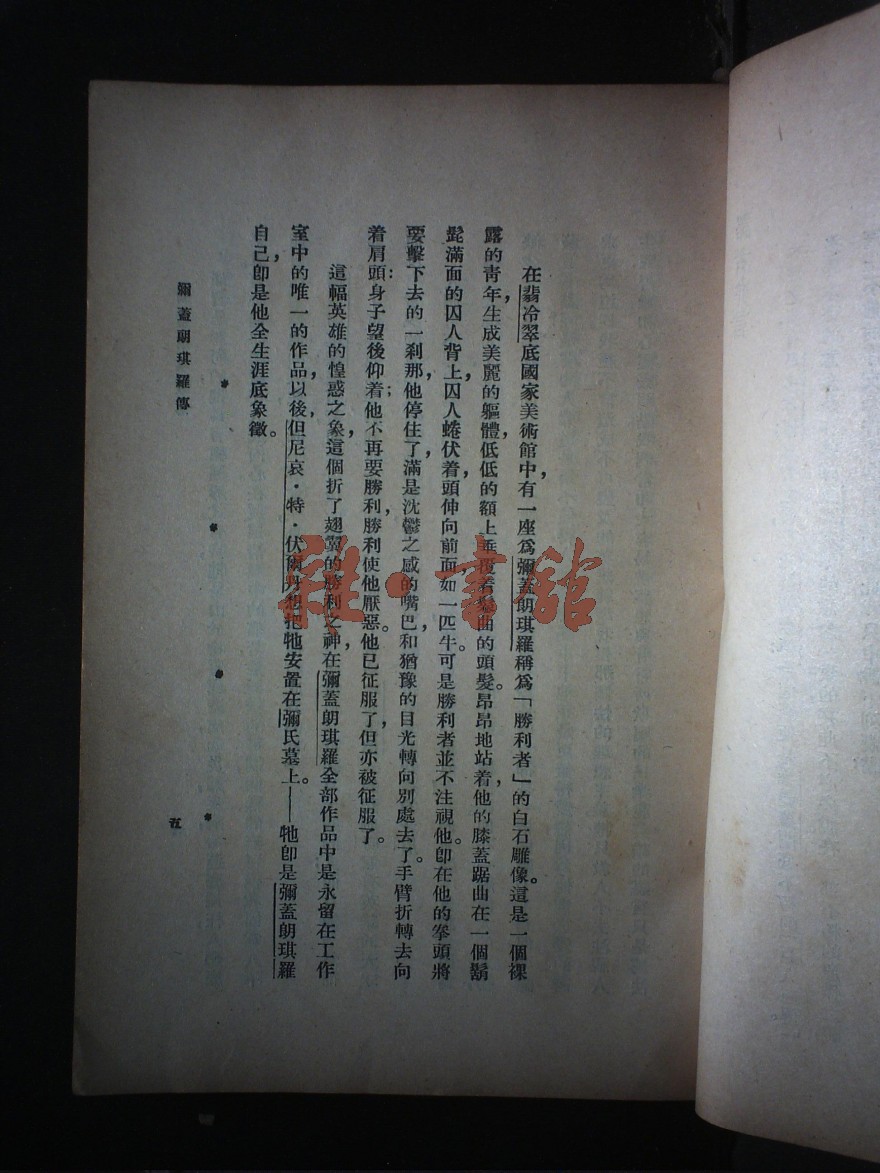 在翡冷翠底國家美術館中，有一座爲彌蓋朗琪羅稱爲「勝利者」的白石雕像。這是一個裸
露的青年，生成美麗的軀體，低低的額上垂覆着鬈曲的頭髮。昂昂地站着，他的膝蓋踞曲在一個鬍
髭滿面的囚人背上，囚人蜷伏着，頭伸向前面，如一匹牛。可是勝利者並不注視他。即在他的拳頭將
要擊下去的一刹那，他停住了，滿是沈鬱之感的嘴巴和猶豫的目光轉向別處去了。手臂折轉去向
着肩頭：身子望後仰着；他不再要勝利，勝利使他厭惡。他已征服了，但亦被征服了。
這幅英雄的惶惑之象，這個折了翅翼的勝利之神，在彌蓋朗琪羅全部作品中是永留在工作
室中的唯一的作品，以後，但尼哀・特・伏爾丹想把牠安置在彌氏墓上。——牠即是彌蓋朗琪羅
自己，即是他全生涯底象徵。
* * * *
彌蓋朗琪羅傳
五
雜・書館